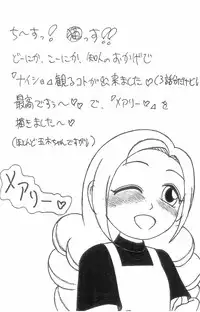 ち〜すっ? 猫っす!!
ど〜にか、こ〜にか、知人のおかげで
『ナイショ』観るコトが出来ました♡(3話分だけど)
最高ですぅ〜♡で、『メアリー♡』を
描きました〜♡
(ほとんど玉木ちゃんですが)
メアリー♡